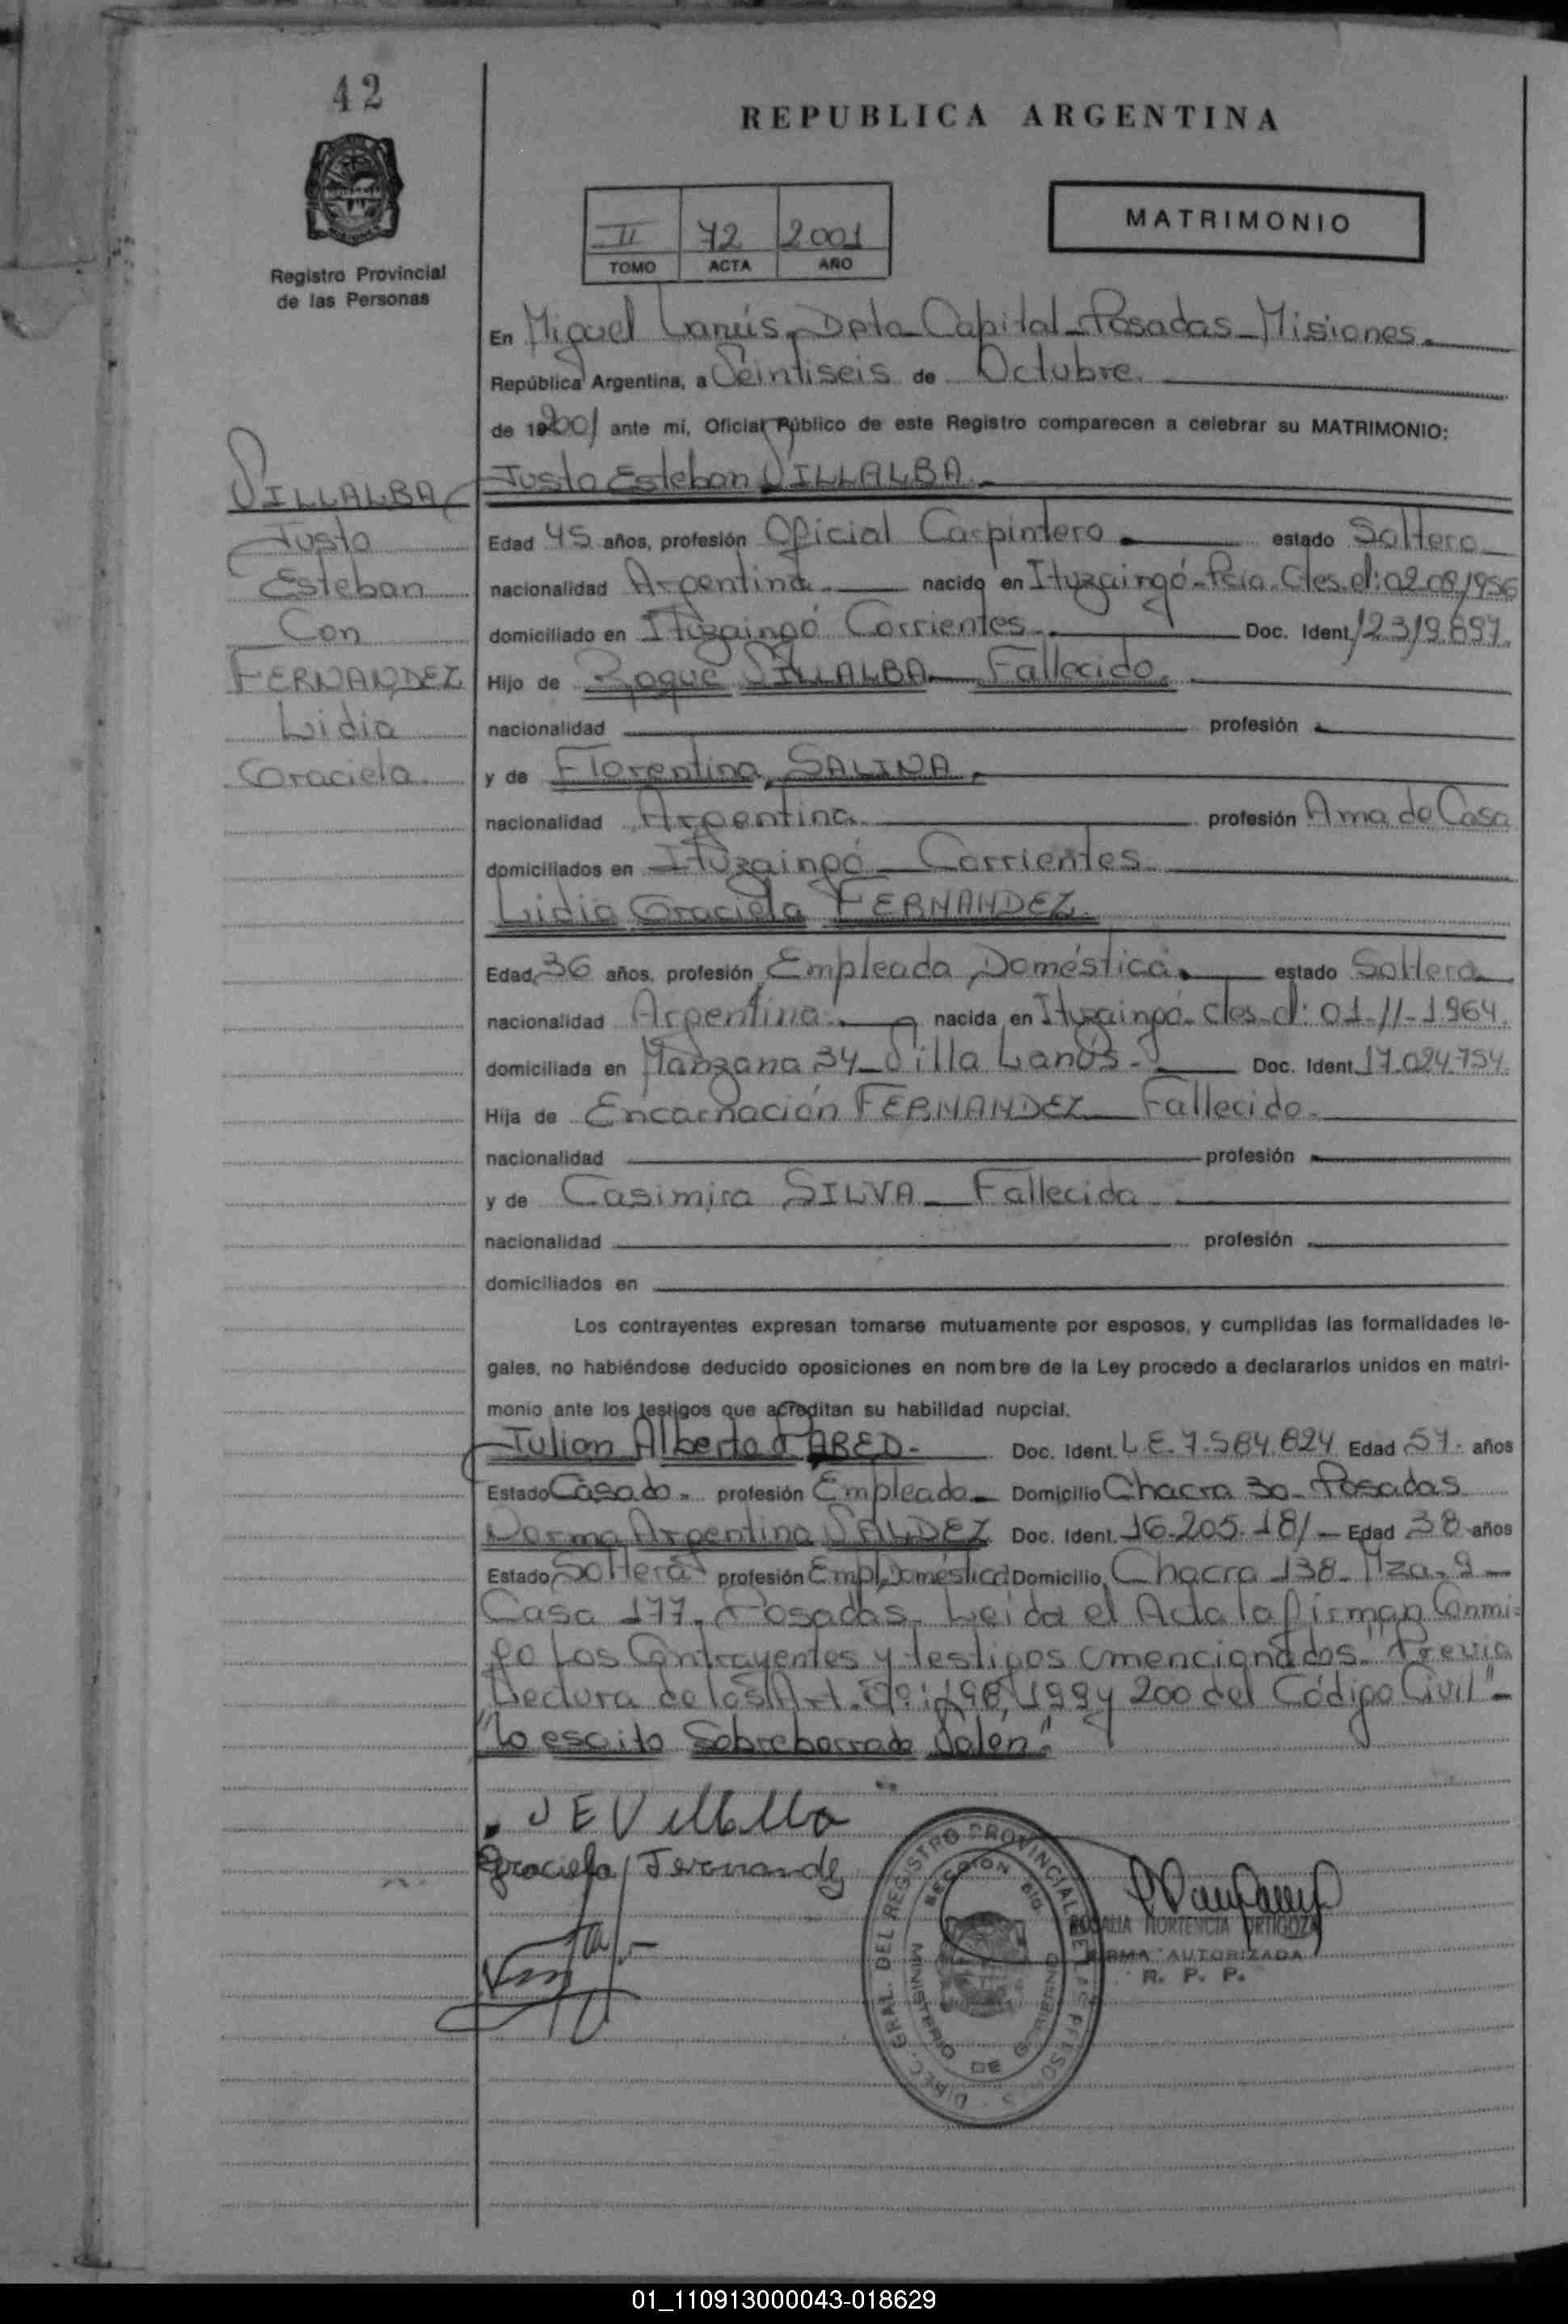 42
REPUBLICA ARGENTINA
II 72 2001
TOMO ACTA AÑO
MATRIMONIO
Registro Provincial
de las Personas
En Miguel Lanús, Dpto Capital - Posadas - Misiones.
República Argentina, a Veintiseis de Octubre.
de 2001 ante mi, Oficial Público de este Registro comparecen a celebrar su MATRIMONIO:
VILLALBA
Justo
Esteban
Con
FERNANDEZ
Lidia
Graciela.
Justo Esteban VILLALBA.-
Edad 45 años, profesión Oficial Carpintero. estado Soltero
nacionalidad Argentina. nacido en Ituzaingó - Pcia. Ctes. el: 02.08/1956
domiciliado en Ituzaingó Corrientes. Doc. Ident. 12.319.897.
Hijo de Roque VILLALBA - Fallecido.
nacionalidad profesión
y de Florentina SALINA.
nacionalidad Argentina. profesión Ama de Casa
domiciliados en Ituzaingó - Corrientes.
Lidia Graciela FERNANDEZ.
Edad 36 años, profesión Empleada Doméstica. estado Soltera
nacionalidad Argentina. nacida en Ituzaingó - Ctes. el: 01-11-1964.
domiciliada en Manzana 34 - Villa Lanús - Doc. Ident. 17.024.754.
Hija de Encarnación FERNANDEZ - Fallecido.
nacionalidad profesión
y de Casimira SILVA - Fallecida
nacionalidad profesión
domiciliados en
Los contrayentes expresan tomarse mutuamente por esposos, y cumplidas las formalidades le-
gales, no habiéndose deducido oposiciones en nombre de la Ley procedo a declararlos unidos en matri-
monio ante los testigos que acreditan su habilidad nupcial.
Julian Alberto PARED - Doc. Ident. L.E. 7.584.824 Edad 57. años
Estado Casado - profesión Empleado - Domicilio Chacra 30 - Posadas
Norma Argentina VALDEZ Doc. Ident. 16.205.181 - Edad 38 años
Estado Soltera profesión Empl. Doméstica Domicilio, Chacra 138 - Mza. 9 -
Casa 177. Posadas. Leida el Acta la firman Conmi-
go los Contrayentes y testigos mencionados. "Previa
Lectura de los Art. Nº: 198, 199 y 200 del Código Civil" -
"Lo escito Sobreborrado Valen".
J E Villalba
Graciela Fernandez
DIREC. GRAL. DEL REGISTRO PROVINCIAL DE LAS PERSONAS
MINISTERIO DE GOBIERNO
ROSALIA HORTENCIA ORTIGOZA
FIRMA AUTORIZADA
R. P. P.
01_110913000043-018629